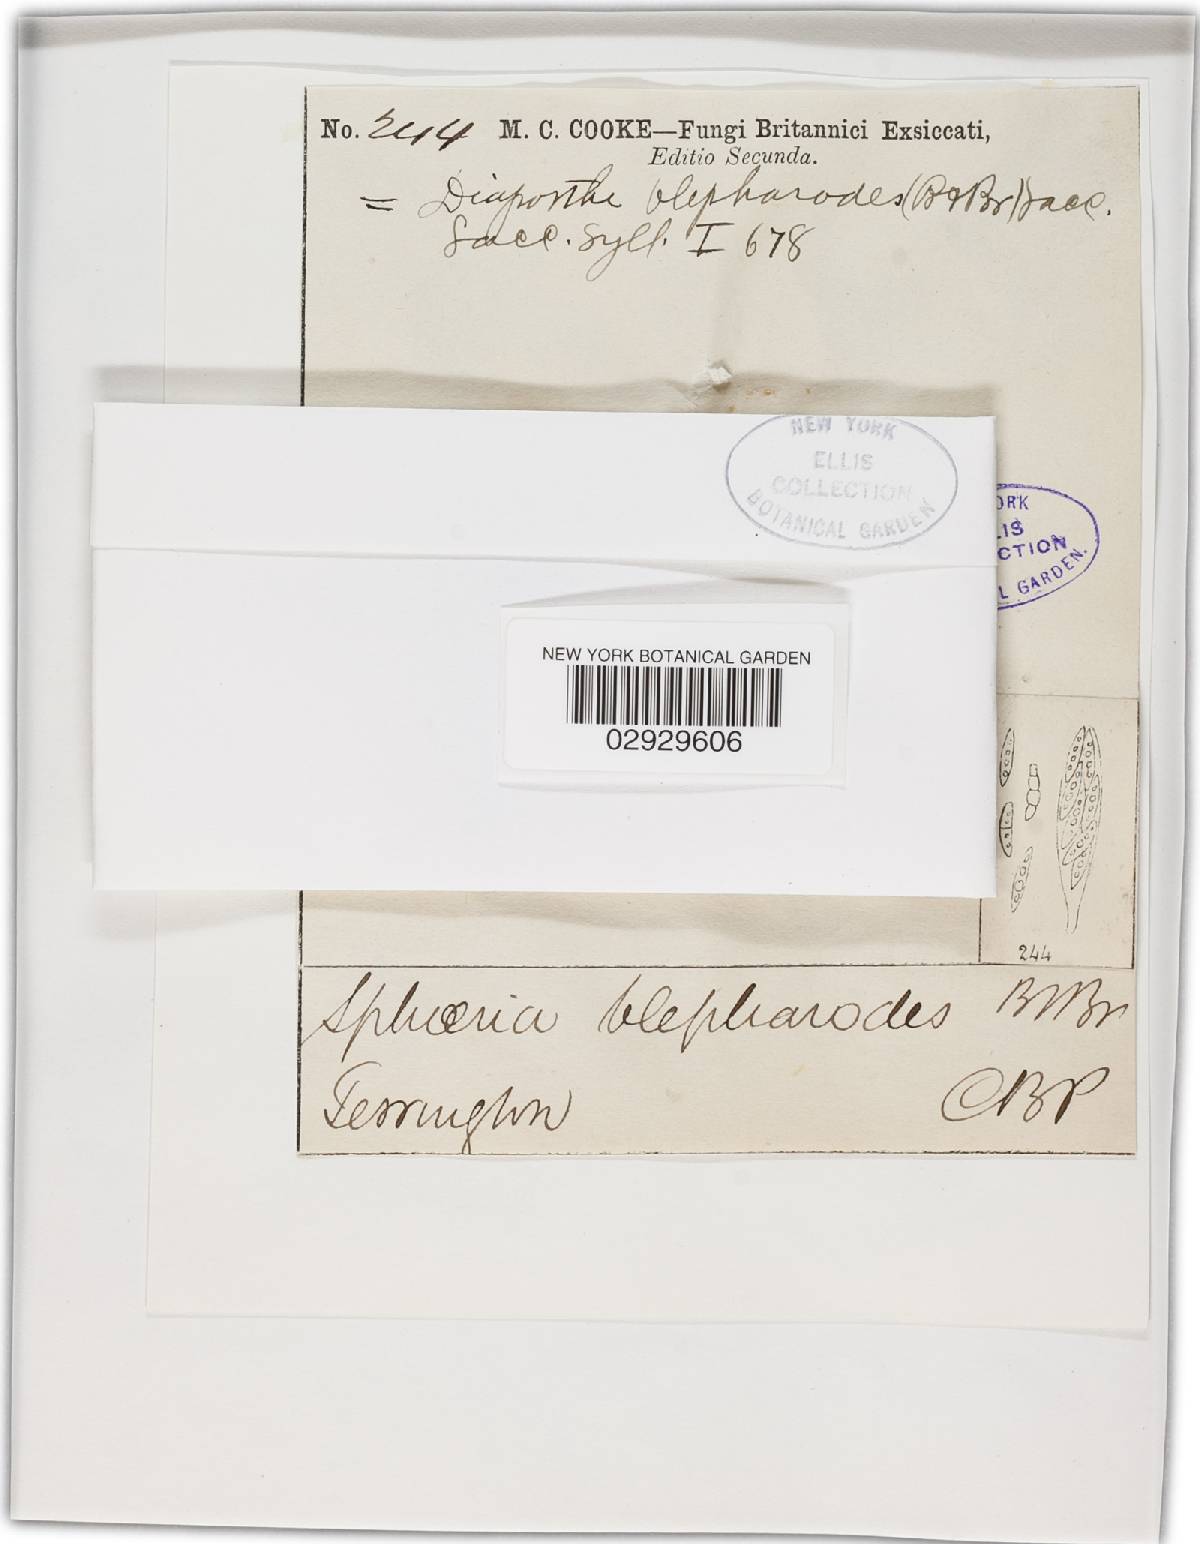 No. 244 M. C. COOKE—Fungi Britannici Exsiccati,
Editio Secunda.
= Diaporthe blepharodes (B & Br) Sacc.
Sacc. Syll. I 678
NEW YORK
ELLIS
COLLECTION
BOTANICAL GARDEN
ORK
LIS
CTION
L GARDEN.
NEW YORK BOTANICAL GARDEN
02929606
244
Sphæria blepharodes B & Br
Terrington CBP